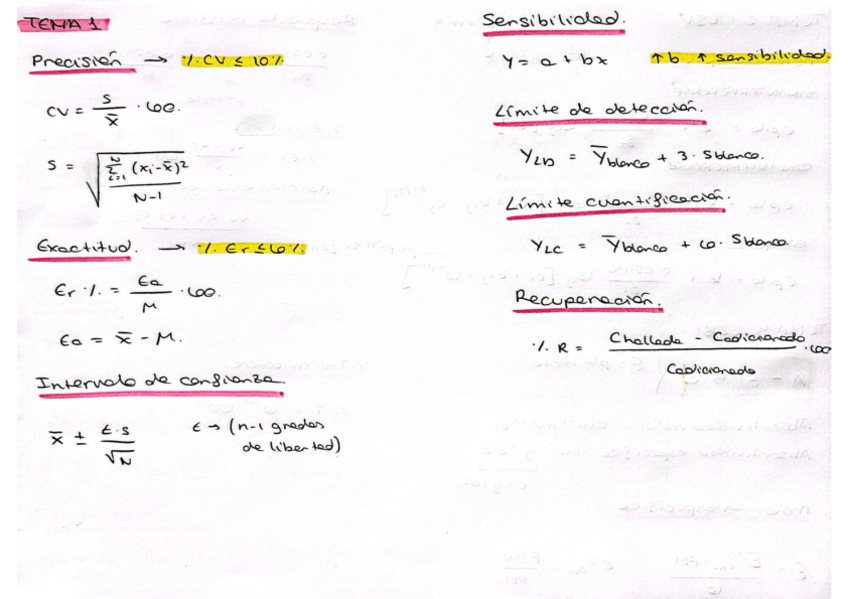 TEMA 1
Precisión → % CV ≤ 10%
CV = S / x̄ · 100.
S = √( Σ_{i=1}^{N} (xi - x̄)² / N-1 )
Exactitud. → % Er ≤ 10%
Er % = Ea / M · 100.
Ea = x̄ - M.
Intervalo de confianza.
x̄ ± t·s / √N t → (n-1 grados
de libertad)
Sensibilidad.
Y = a + bx ↑ b ↑ sensibilidad.
Límite de detección.
Y_LD = Ȳblanco + 3 · Sblanco.
Límite cuantificación.
Y_LC = Ȳblanco + 10 · Sblanco.
Recuperación.
% R = Challada - Cadicionado / Cadicionado · 100